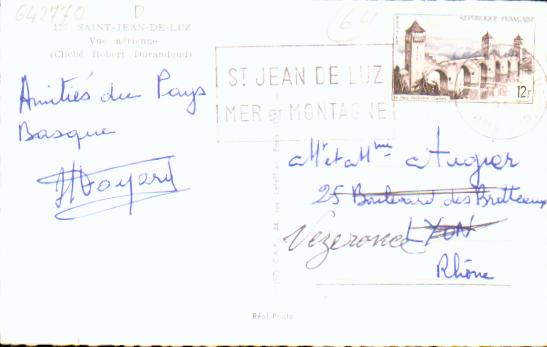 642770 D
SAINT-JEAN-DE-LUZ
Vue aérienne
(Cliché Robert Durandaud)
Amitiés du Pays
Basque
(64
ST JEAN DE LUZ
MER ET MONTAGNE
REPUBLIQUE FRANÇAISE
12F
Mr et Mme Augier
25 Boulevard des Brotteaux
Vezeronce LYON
Rhône
Réel-Photo